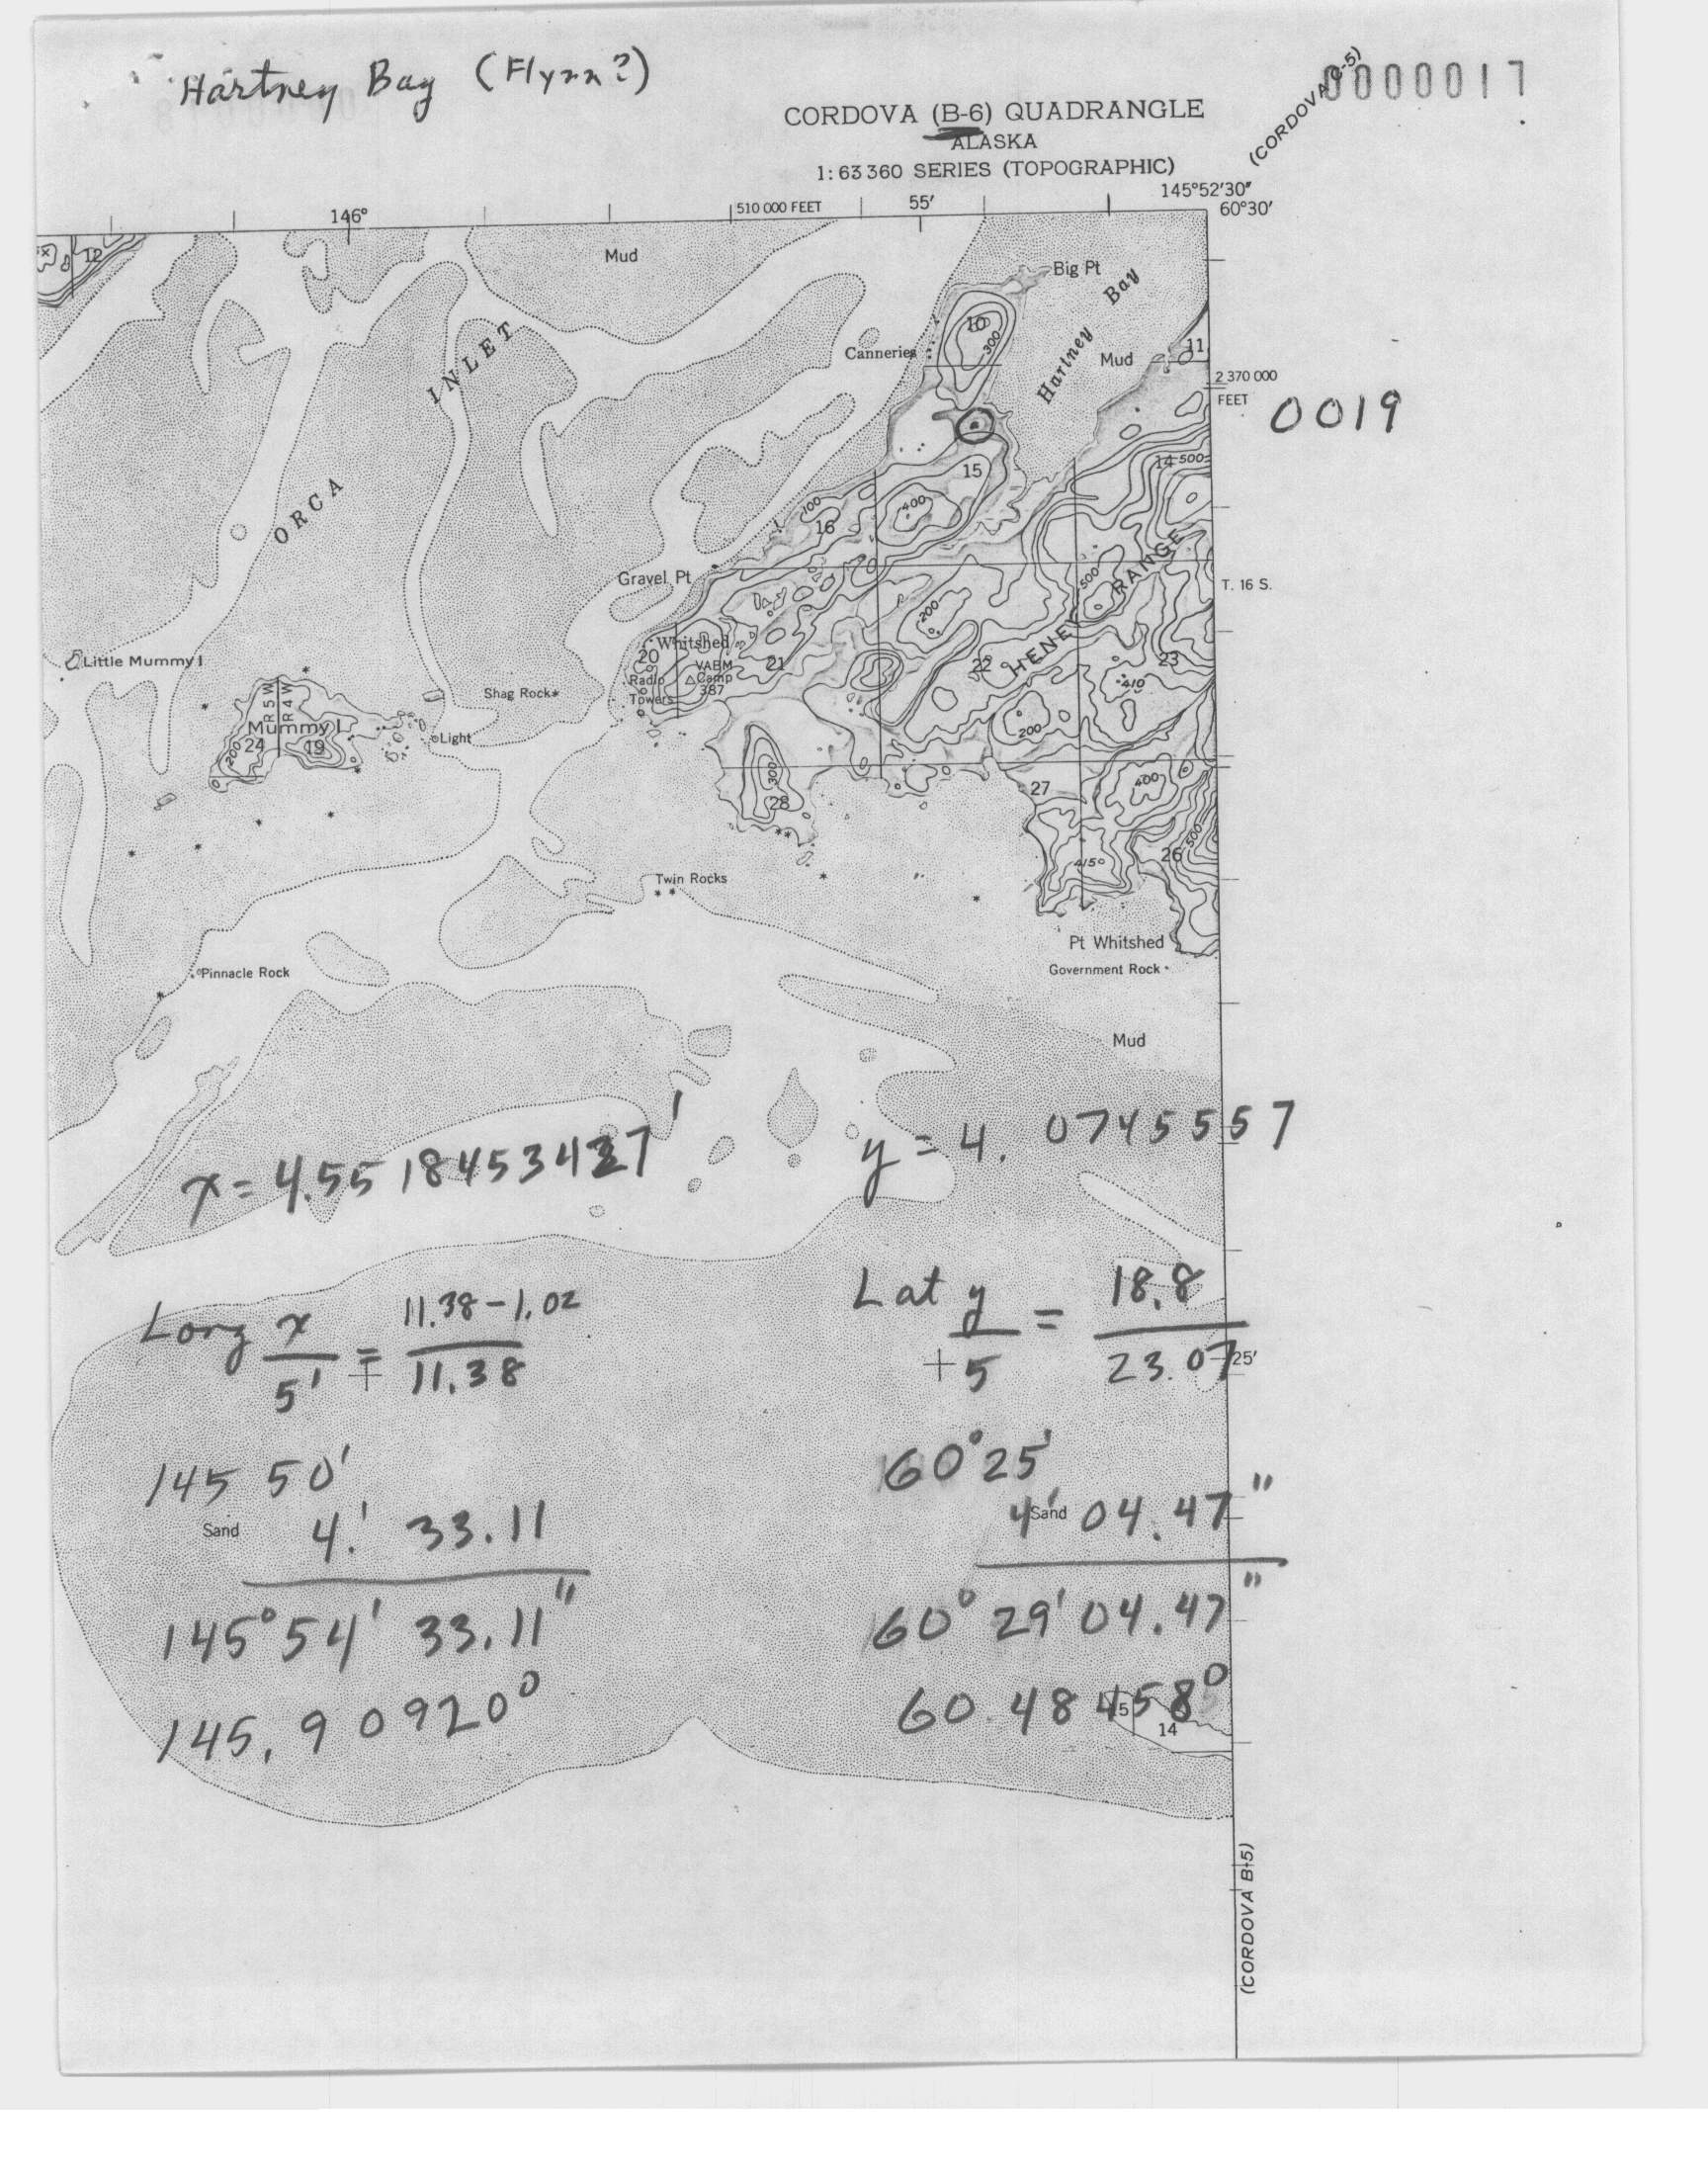 Hartney Bay (Flynn?)
0000017
(CORDOVA C-5)
CORDOVA (B-6) QUADRANGLE
ALASKA
1:63 360 SERIES (TOPOGRAPHIC)
146°
510 000 FEET
55'
145°52'30"
60°30'
12
Mud
Big Pt
Hartney Bay
10
300
Canneries
Mud
11
2 370 000
FEET
0019
ORCA INLET
15
14
500
100
16
400
Gravel Pt
500
T. 16 S.
200
HENEY RANGE
Little Mummy I
Whitshed
20
21
22
23
VABM
Camp
387
Radio
Towers
Shag Rock
410
R 5 W
R 4 W
Mummy I
24
19
200
Light
200
300
28
27
400
26
500
415
Twin Rocks
Pt Whitshed
Government Rock
Pinnacle Rock
Mud
x = 4.5518453427'
y = 4.0745557
Long x/5' = 11.38-1.02/11.38
Lat y/5 = 18.8/23.07
25'
145 50'
60°25'
Sand
4.' 33.11
Sand
4' 04.47"
145°54' 33.11"
60° 29' 04.47"
145.90920°
60.48458°
15
14
(CORDOVA B-5)